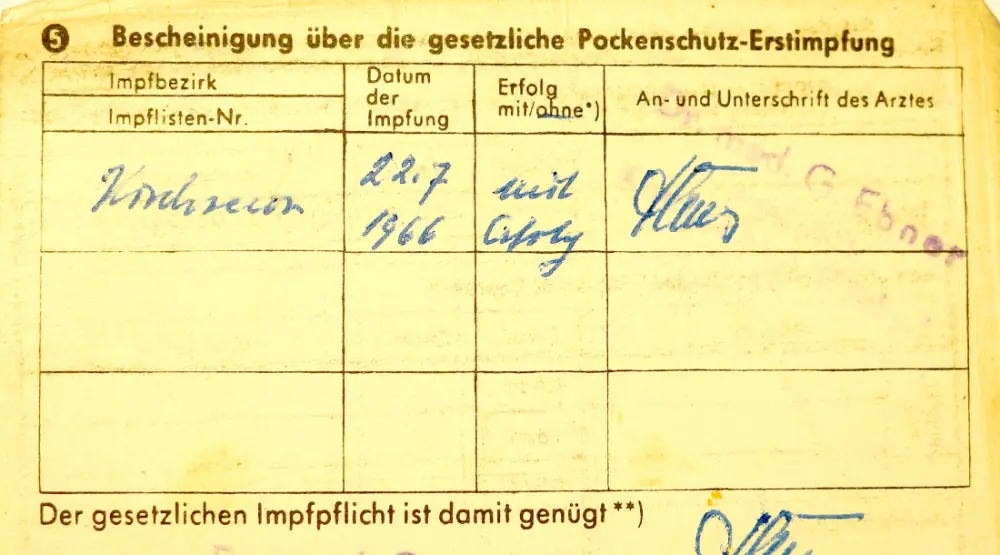 5 Bescheinigung über die gesetzliche Pockenschutz-Erstimpfung
Impfbezirk
Impflisten-Nr.
Datum
der
Impfung
Erfolg
mit/ohne*)
An- und Unterschrift des Arztes
22.7
1966
mit
Erfolg
Dr. med. G Ebner
Der gesetzlichen Impfpflicht ist damit genügt**)